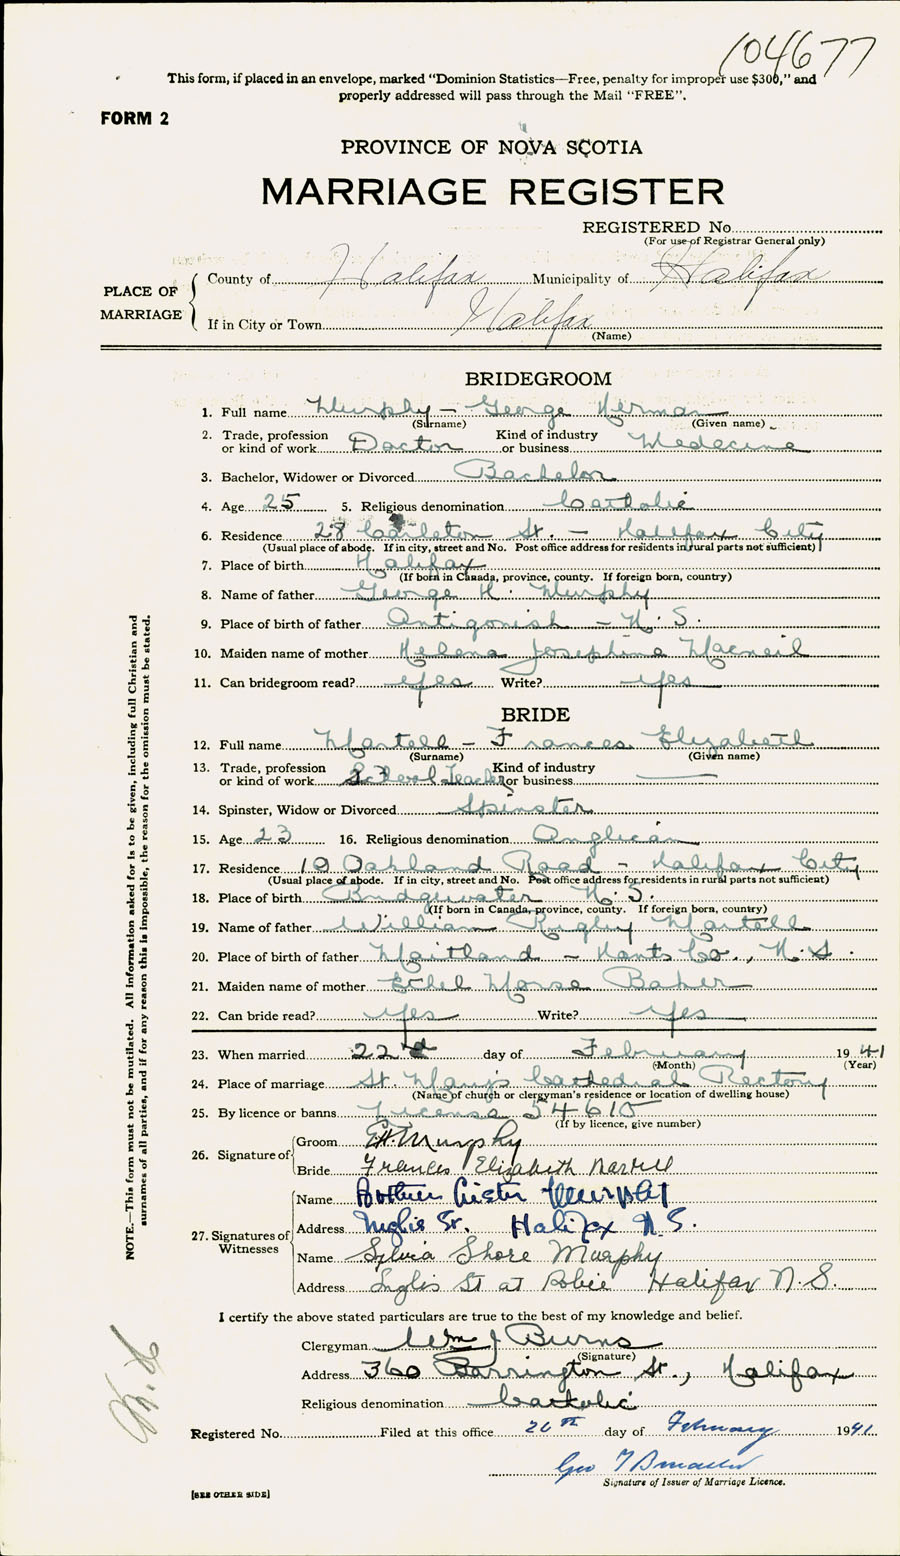 104677
This form, if placed in an envelope, marked "Dominion Statistics—Free, penalty for improper use $300," and
properly addressed will pass through the Mail "FREE".
FORM 2
PROVINCE OF NOVA SCOTIA
MARRIAGE REGISTER
REGISTERED No.
(For use of Registrar General only)
PLACE OF MARRIAGE
County of Halifax Municipality of Halifax
If in City or Town Halifax
(Name)
BRIDEGROOM
1. Full name Murphy - George Herman
(Surname) (Given name)
2. Trade, profession or kind of work Doctor Kind of industry or business Medecine
3. Bachelor, Widower or Divorced Bachelor
4. Age 25 5. Religious denomination Catholic
6. Residence 28 Carleton St. - Halifax City
(Usual place of abode. If in city, street and No. Post office address for residents in rural parts not sufficient)
7. Place of birth Halifax
(If born in Canada, province, county. If foreign born, country)
8. Name of father George H. Murphy
9. Place of birth of father Antigonish - N. S.
10. Maiden name of mother Helena Josephine Macneil
11. Can bridegroom read? yes Write? yes
BRIDE
12. Full name Martell - Frances Elizabeth
(Surname) (Given name)
13. Trade, profession or kind of work School Teacher Kind of industry or business
14. Spinster, Widow or Divorced Spinster
15. Age 23 16. Religious denomination Anglican
17. Residence 19 Oakland Road - Halifax City
(Usual place of abode. If in city, street and No. Post office address for residents in rural parts not sufficient)
18. Place of birth Bridgewater N. S.
(If born in Canada, province, county. If foreign born, country)
19. Name of father William Martell
20. Place of birth of father Maitland - Hants Co., N. S.
21. Maiden name of mother Ethel Morse Baker
22. Can bride read? yes Write? yes
23. When married 22nd day of February 1941
(Month) (Year)
24. Place of marriage St. Mary's Cathedral Rectory
(Name of church or clergyman's residence or location of dwelling house)
25. By licence or banns License 54615
(If by licence, give number)
26. Signature of
Groom Murphy
Bride Frances Elizabeth Martell
27. Signatures of Witnesses
Name Murphy
Address Inglis St. Halifax N. S.
Name Sylvia Shore Murphy
Address Inglis St at Robie Halifax N. S.
I certify the above stated particulars are true to the best of my knowledge and belief.
Clergyman Wm J Burns
(Signature)
Address 360 Barrington St., Halifax
Religious denomination Catholic
Registered No. Filed at this office 26th day of February 1941
Geo
Signature of Issuer of Marriage Licence.
[SEE OTHER SIDE]
NOTE.—This form must not be mutilated. All information asked for is to be given, including full Christian and
surnames of all parties, and if for any reason this is impossible, the reason for the omission must be stated.